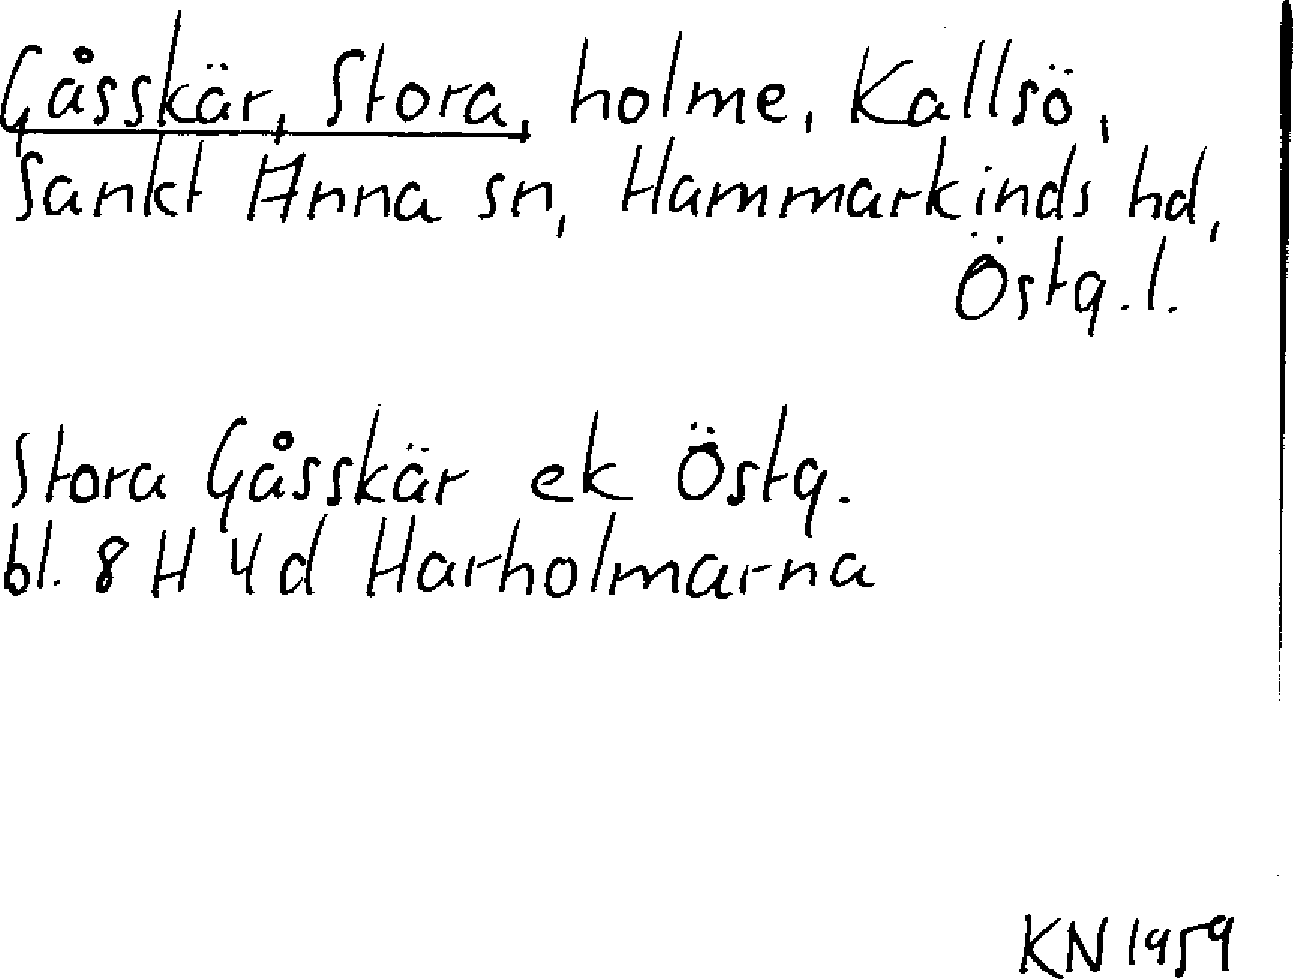 Gåsskär, Stora, holme, Kallsö,
Sankt Anna sn, Hammarkinds hd,
Östg.l.
Stora Gåsskär ek Östg.
bl. 8 H 4 d Harholmarna
KN 1959